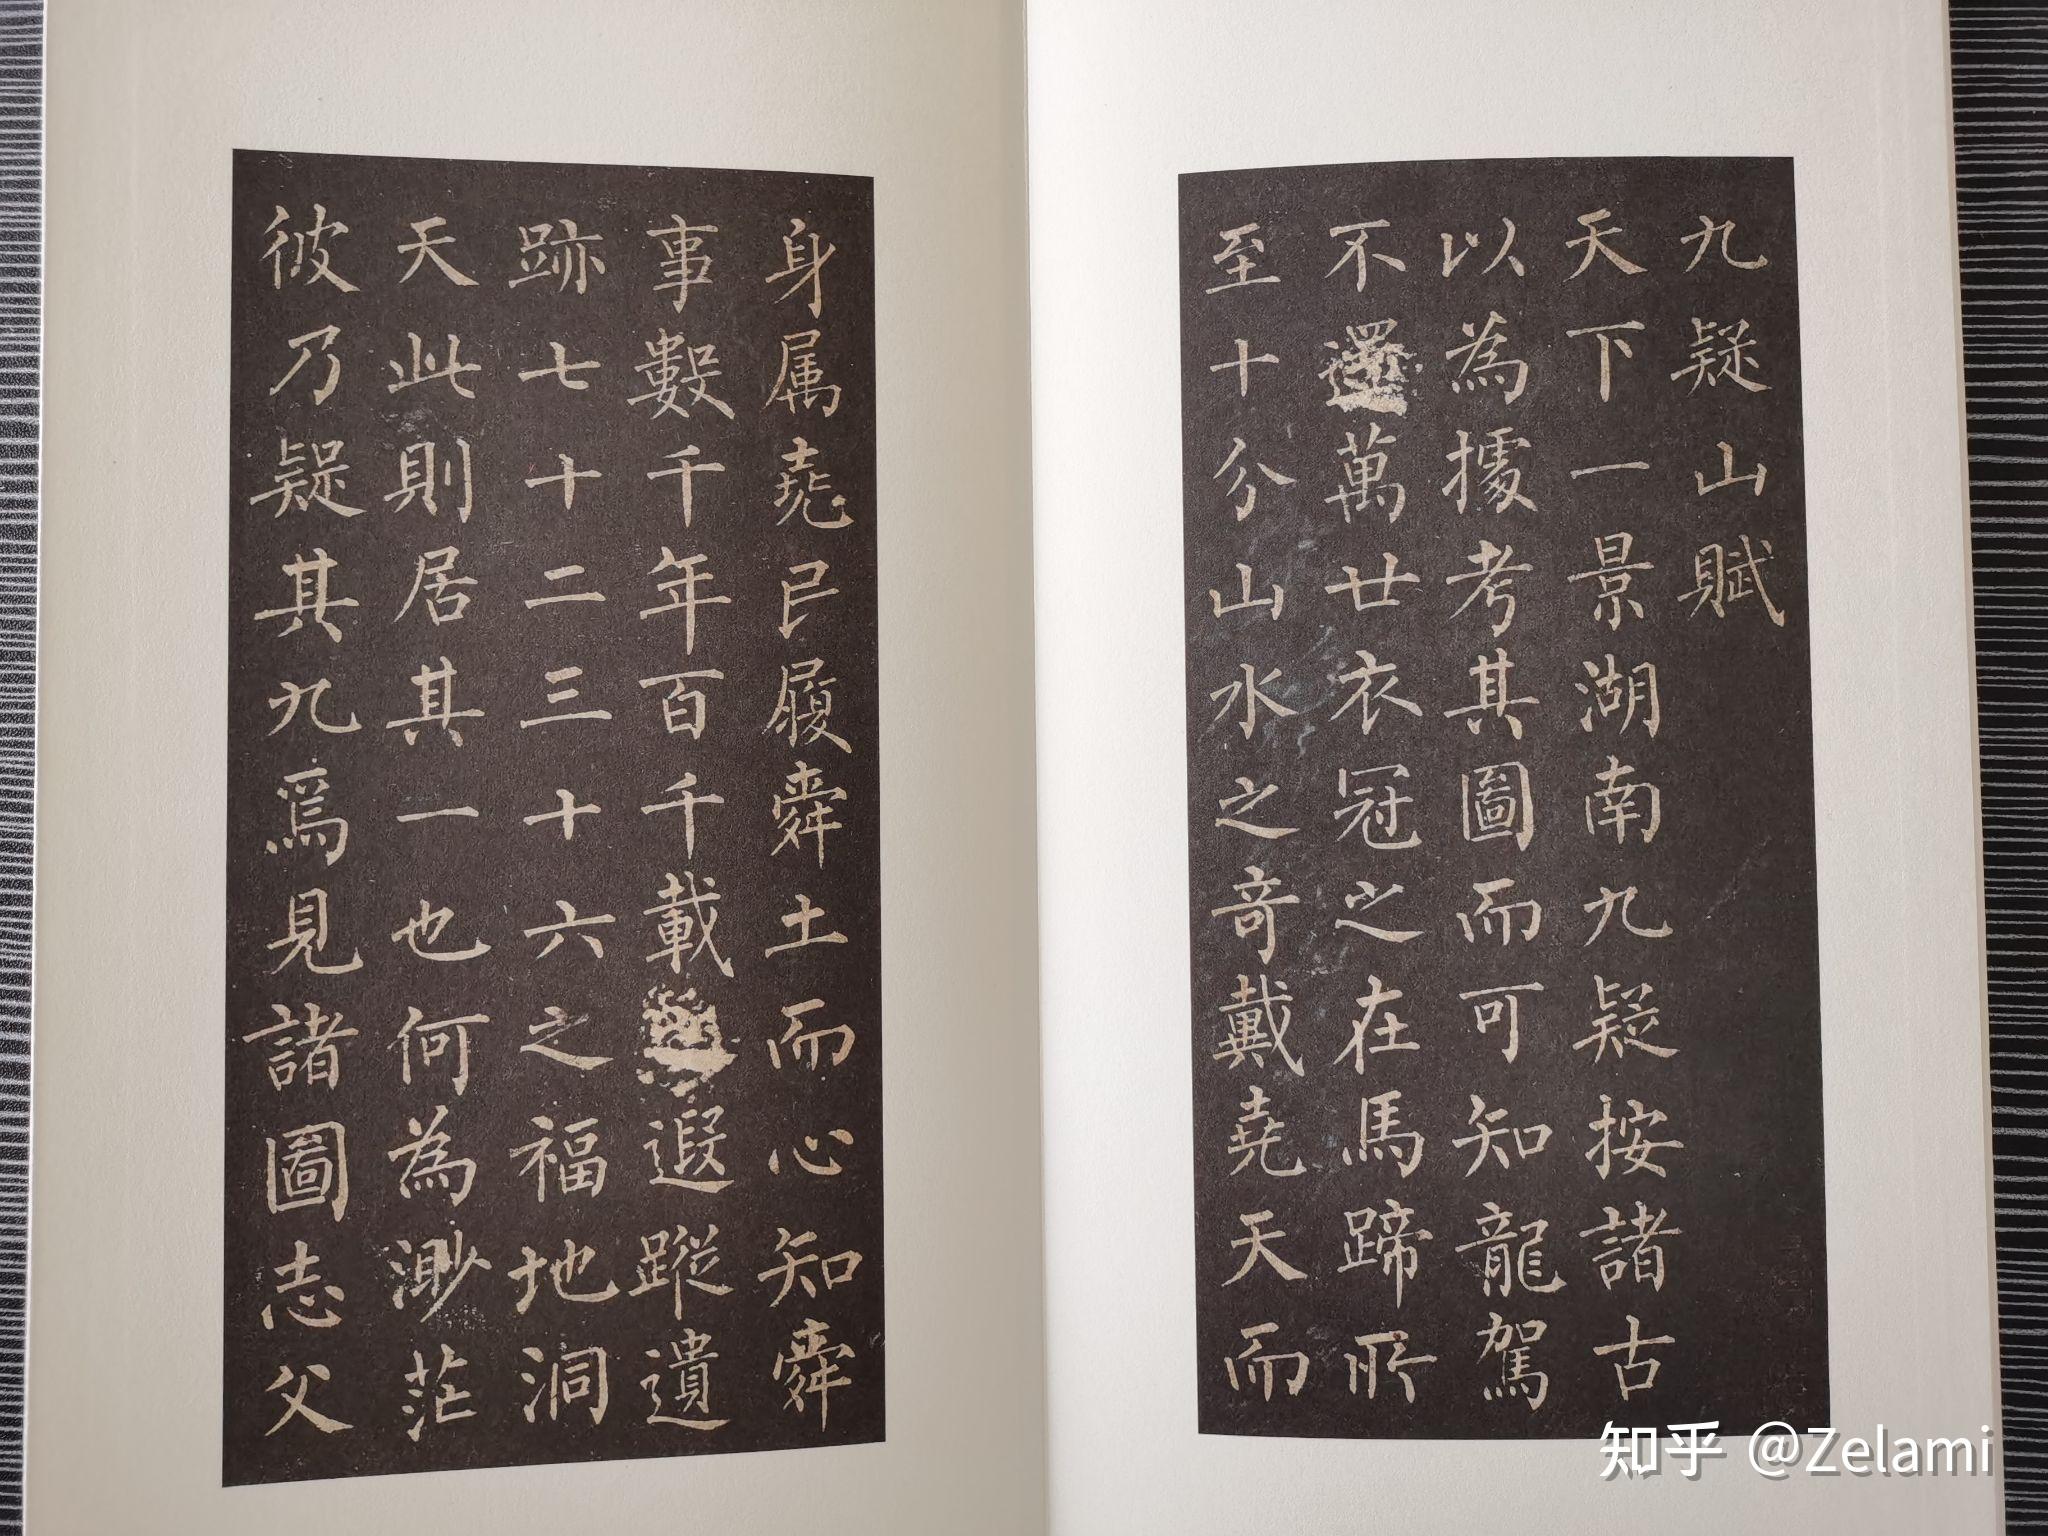 九疑山賦
天下一景湖南九疑按諸古
以為據考其圖而可知龍駕
不還萬廿衣冠之在馬蹄所
至十分山水之奇戴堯天而
身属堯已履舜土而心知舜
事數千年百千載遐蹤遺
跡七十二三十六之福地洞
天此則居其一也何為渺茫
彼乃疑其九焉見諸圖志父
知乎 @Zelami